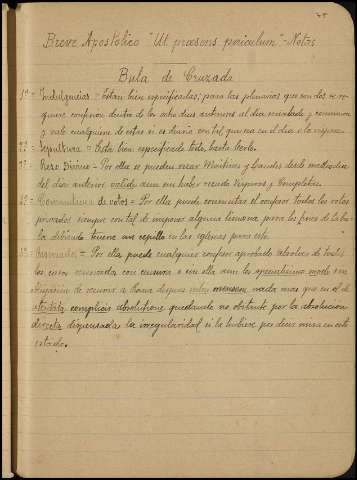 Breve Apostólico "Ut praesens periculum" - Notas
Bula de Cruzada
1ª = Indulgencias = Estan bien especificadas; para las plenarias que son dos se re-
quiere confesion dentro de los ocho dias anteriores al dia señalado y comunion
y vale cualquiera de estas si es diaria con tal que sea en el dia o la vispera.
2ª = Sepultura = Esta bien especificado todo, basta leerlo.
3ª = Rezo Divino = Por ella se pueden rezar Maitines y Laudes desde mediodia
del dia anterior aun sin haber rezado Visperas y Completas.
4ª = Conmutacion de votos = Por ella puede conmutar el confesor todos los votos
privados siempre con tal de imponer alguna limosna para los fines de la bu-
la debiendo tenerse un cepillo en las iglesias para esto.
5ª = = Por ella puede cualquier confesor aprobado absolver de todos
los casos reservados con censura o sin ella aun los specialissimo modo sin
obligacion de recurrir a Roma despues nada mas que en el de
attentata complicis absolutione quedando no obstante por la absolucion
dispensada la irregularidad si la hubiese por decir misa en este
estado.